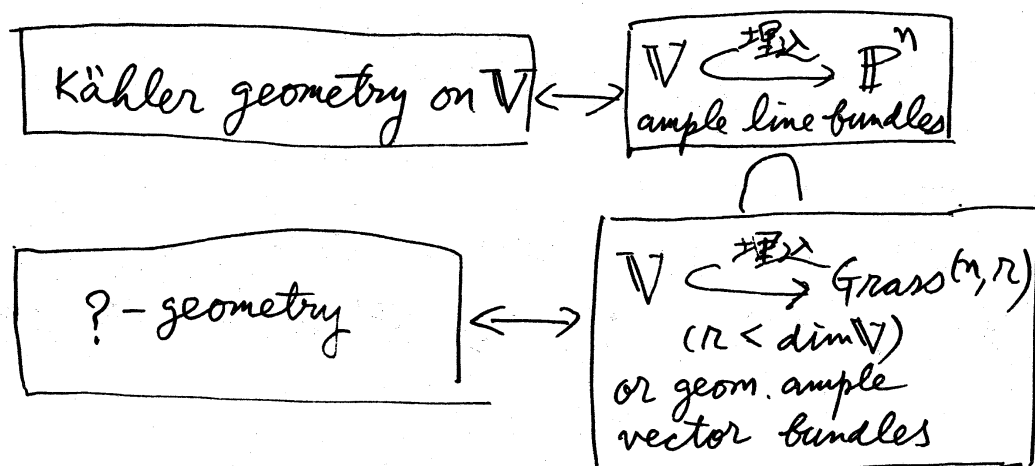 Kähler geometry on 𝕍 ↔ 𝕍 ↪ ℙⁿ
埋込
ample line bundles
∩
? - geometry ↔ 𝕍 ↪ Grass(n, r)
埋込
(r < dim 𝕍)
or geom. ample
vector bundles